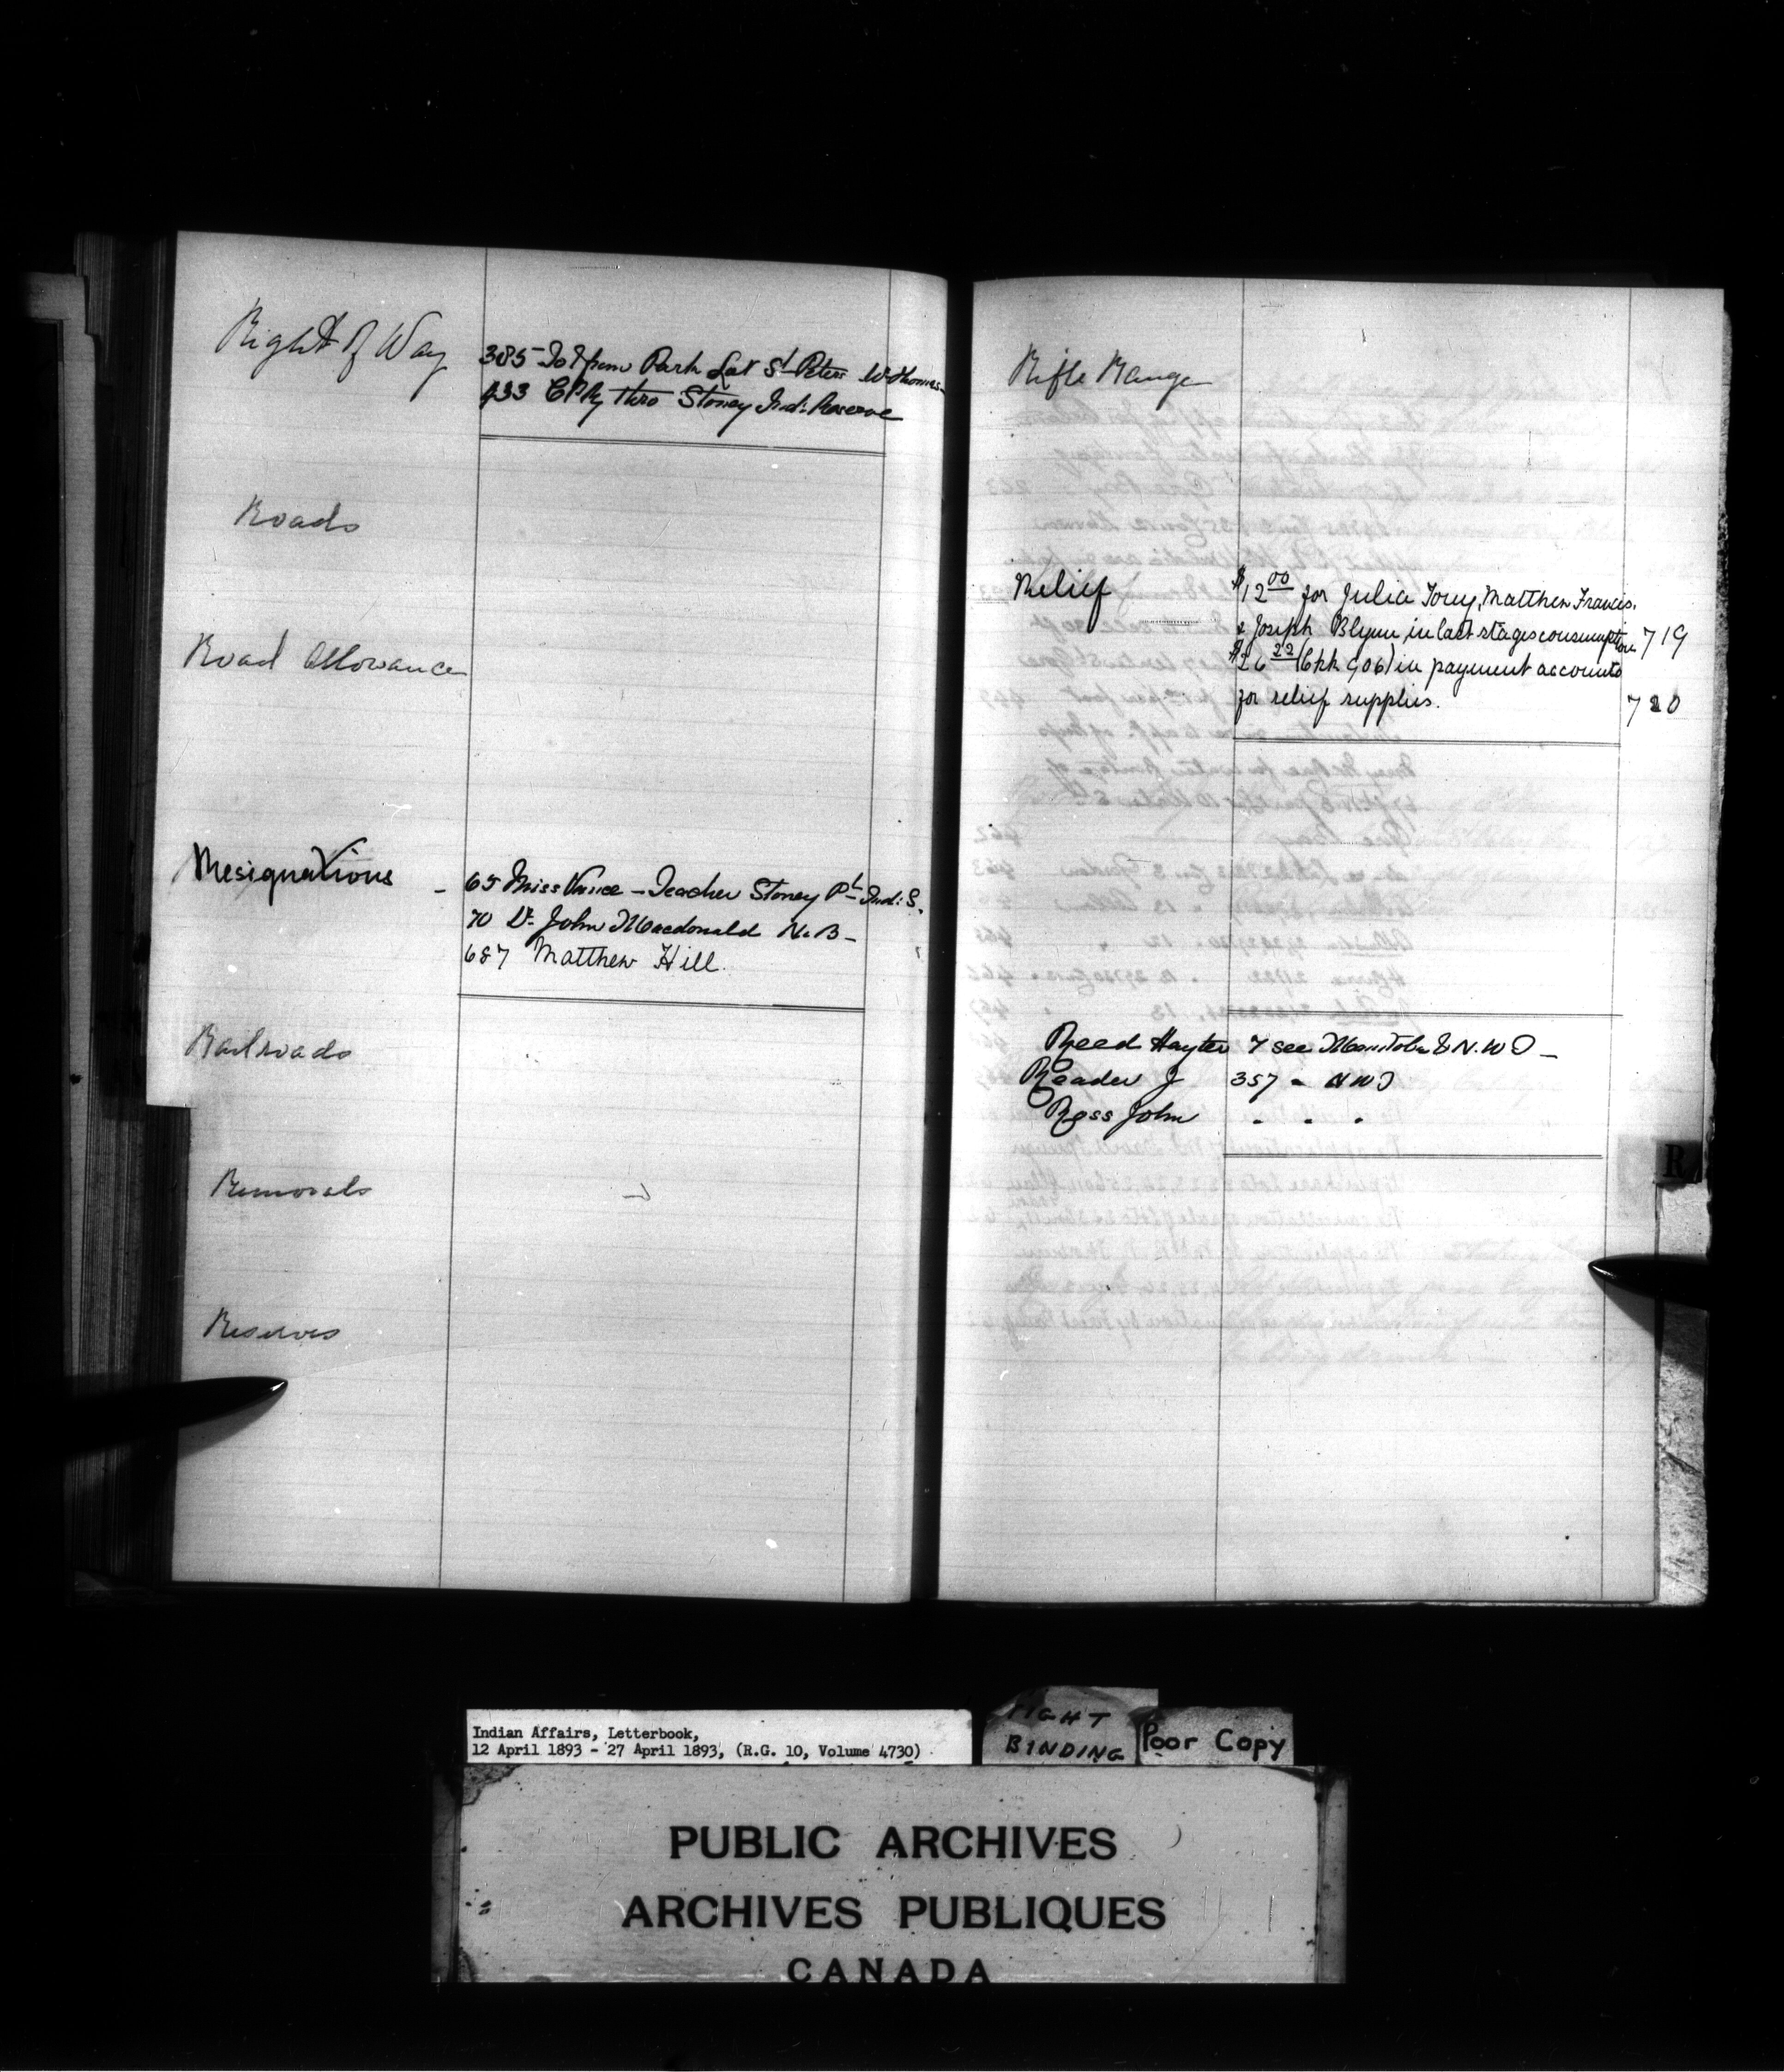 Right of Way
385 To & from Park Lot St Peters W. Thomas
433 CPRy thro Stoney Ind: Reserve
Roads
Road Allowance
Resignations
65 Miss Vance - Teacher Stoney Pt Ind: S.
70 Dr John Macdonald N.B -
687 Matthew Hill.
Railroads
Removals
Reserves
Rifle Range
Relief
$12 00 for Julia Tony, Matthew Francis,
& Joseph Blynn in last stages consumption 719
$26 22 (Chk 906) in payment accounts
for relief supplies. 720
Reed Hayter 7 see Manitoba & N.W.T -
Reader J 357 " NWT
Ross John " " "
R
Indian Affairs, Letterbook,
12 April 1893 - 27 April 1893, (R.G. 10, Volume 4730)
TIGHT
BINDING
Poor Copy
PUBLIC ARCHIVES
ARCHIVES PUBLIQUES
CANADA